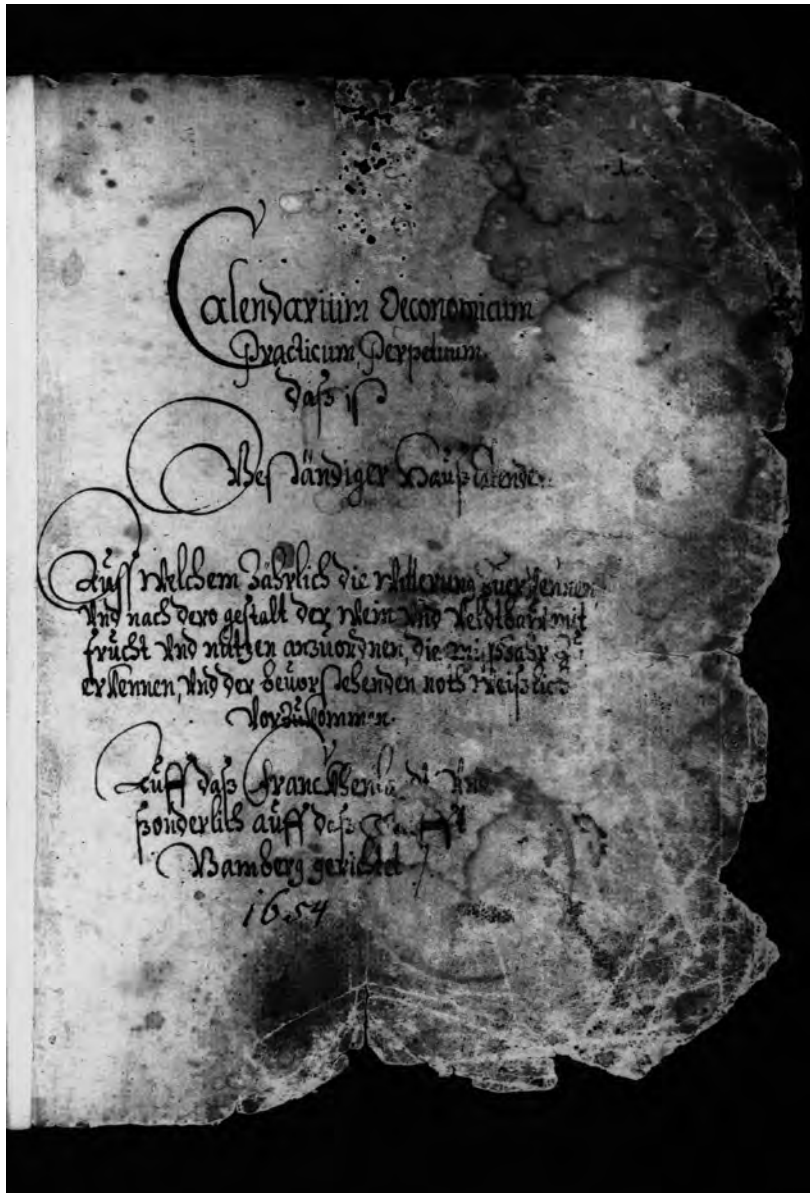 Calendarium Oeconomicum
Practicum, Perpetuum.
daß ist
Beständiger Hauß Calender.
Auß welchem Jährlich die Witterung zu erkennen
Und nach dero gestalt der Wein und Veldtbaw mit
frücht und nützen anzuordnen, die mißJahr zu
erkennen, und der bevorstehenden noth weißlich
Vorzukommen.
Auff daß Franckhenland und
sonderlich auff deß
Bamberg gerichtet
1654